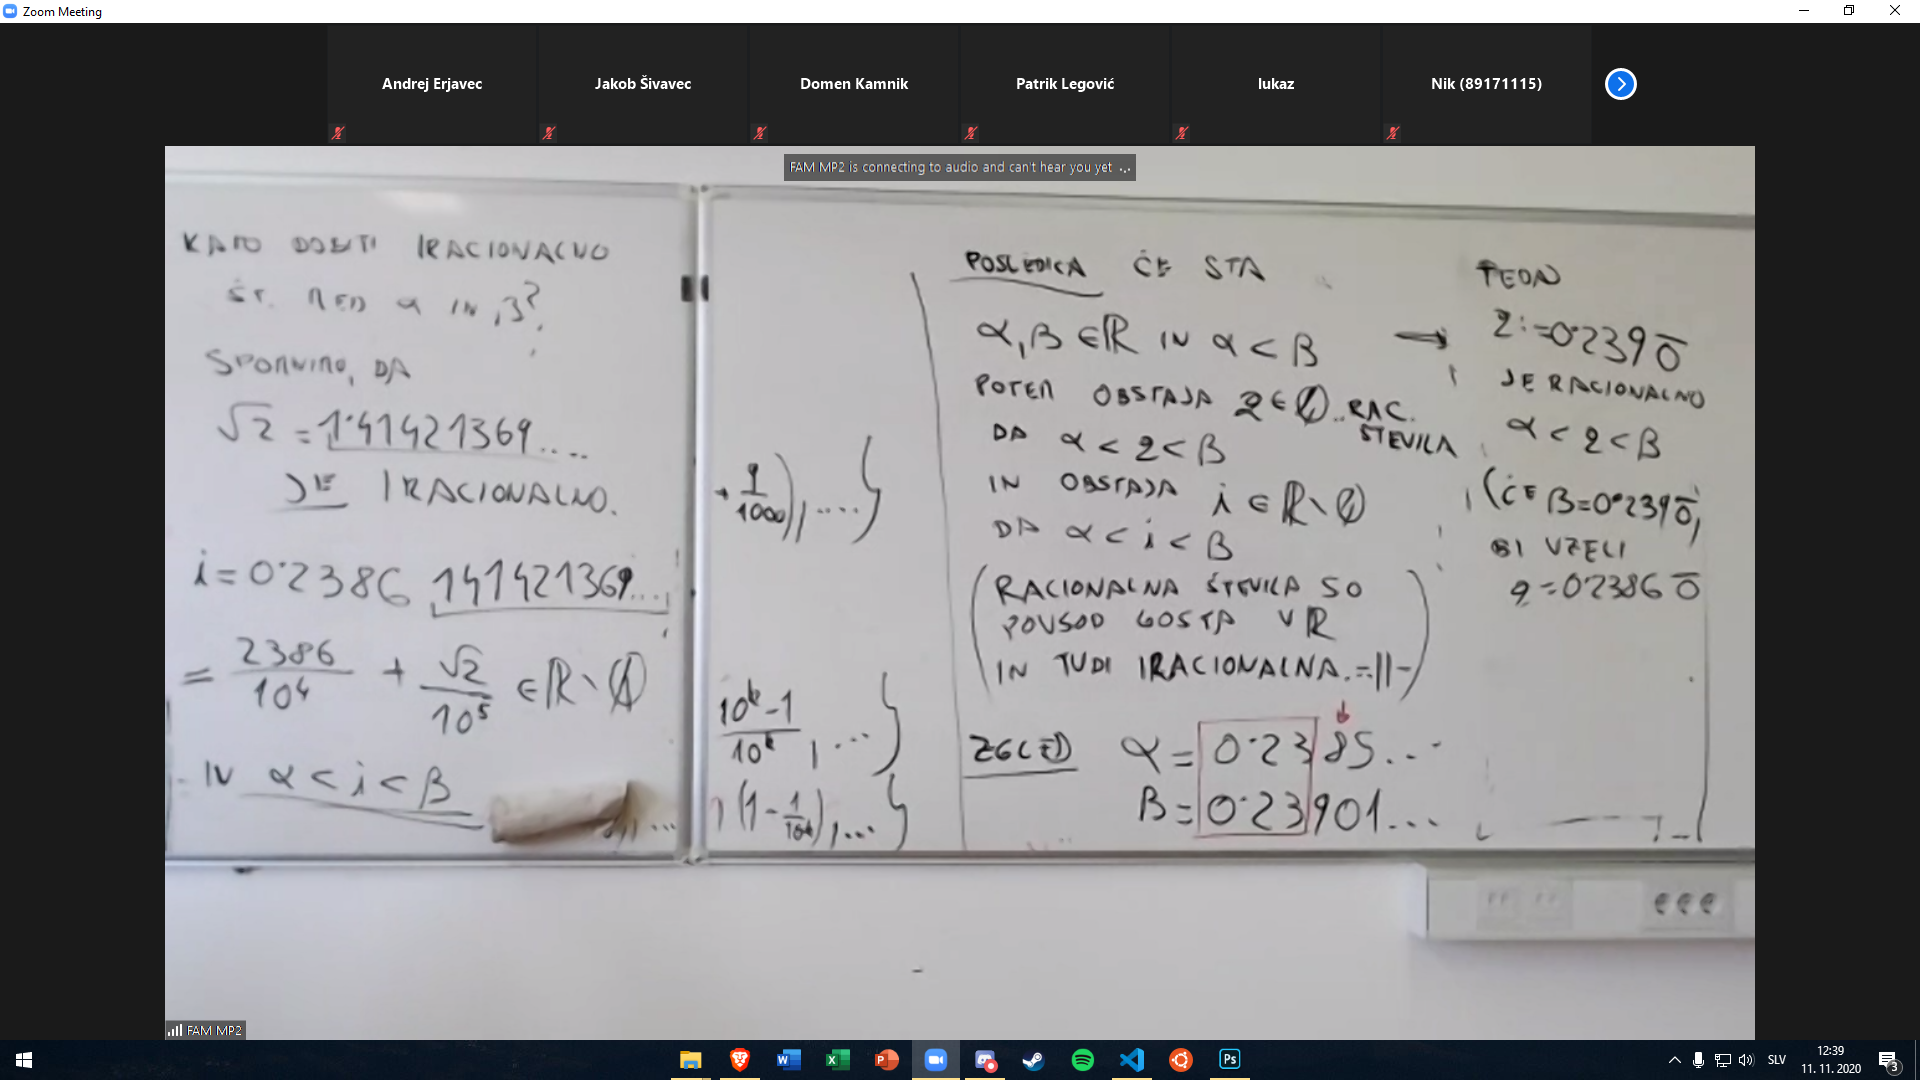 Zoom Meeting
Andrej Erjavec
Jakob Šivavec
Domen Kamnik
Patrik Legović
lukaz
Nik (89171115)
FAM MP2 is connecting to audio and can't hear you yet ...
KAKO DOBITI IRACIONALNO
ŠT. MED α IN β?
SPOMNIMO, DA
√2 = 1.41421369....
JE IRACIONALNO.
i = 0.2386 141421369...
= 2386/10⁴ + √2/10⁵ ∈ ℝ \ ℚ
IN α < i < β
+ 9/1000), ....}
10ᵏ-1/10ᵏ, ...}
, (1 - 1/10ᵏ), ...}
POSLEDICA ČE STA
α, β ∈ ℝ IN α < β →
POTEM OBSTAJA q ∈ ℚ .. RAC. ŠTEVILA
DA α < q < β
IN OBSTAJA i ∈ ℝ \ ℚ
DA α < i < β
(RACIONALNA ŠTEVILA SO
POVSOD GOSTA V ℝ
IN TUDI IRACIONALNA. =||-)
ZGLED α = 0.2385...
β = 0.23901...
TEDAJ
q := 0.2390̅
JE RACIONALNO
α < q < β
(ČE β = 0.2390̅,
BI VZELI
q = 0.23860̅
FAM MP2
SLV
12:39
11. 11. 2020
3